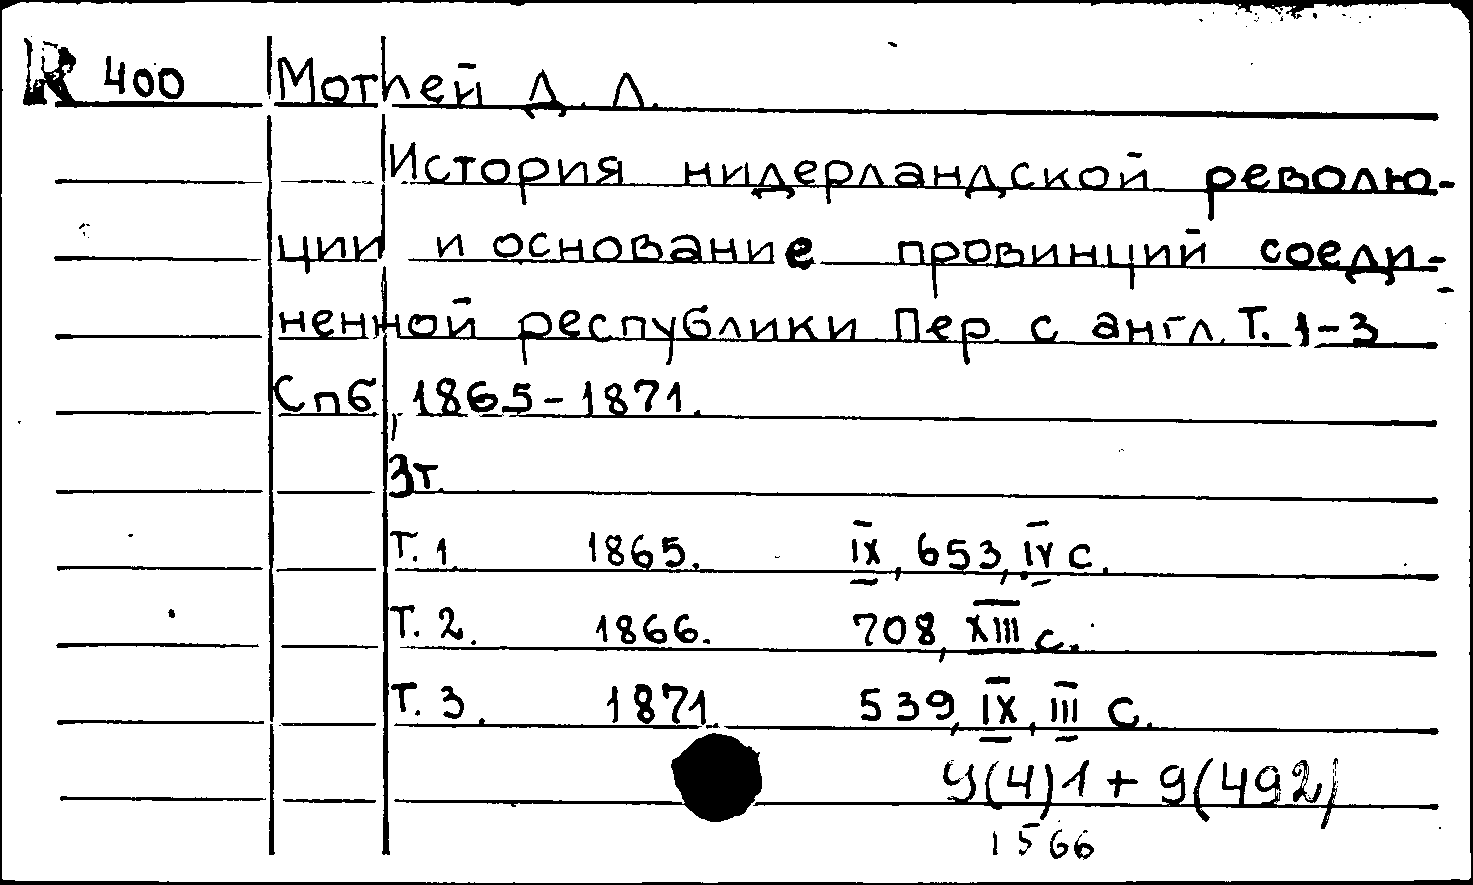 R 400 Мотлей Д. Л.
История нидерландской револю-
ции и основание провинций соеди-
ненной республики Пер. с англ. Т. 1-3
Спб, 1865-1871.
3т.
Т. 1. 1865. IX, 653, IV с.
Т. 2. 1866. 708, XIII с.
Т. 3. 1871. 539, IX, III с.
9(4)1 + 9(492)
1566